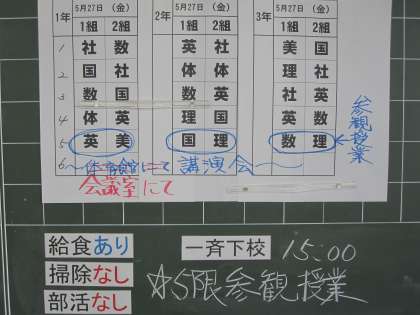 1年 5月27日 (金) 2年 5月27日 (金) 3年 5月27日 (金)
1組 2組 1組 2組 1組 2組
1 社 数 英 社 美 国
2 国 社 体 体 理 社
3 数 国 数 英 社 英
4 体 英 英 数
5 英 美 国 理 数 理 ←参観授業
6 ～体育館にて 講演会～
会議室にて
給食あり 一斉下校 15:00
掃除なし ☆5限参観授業
部活なし